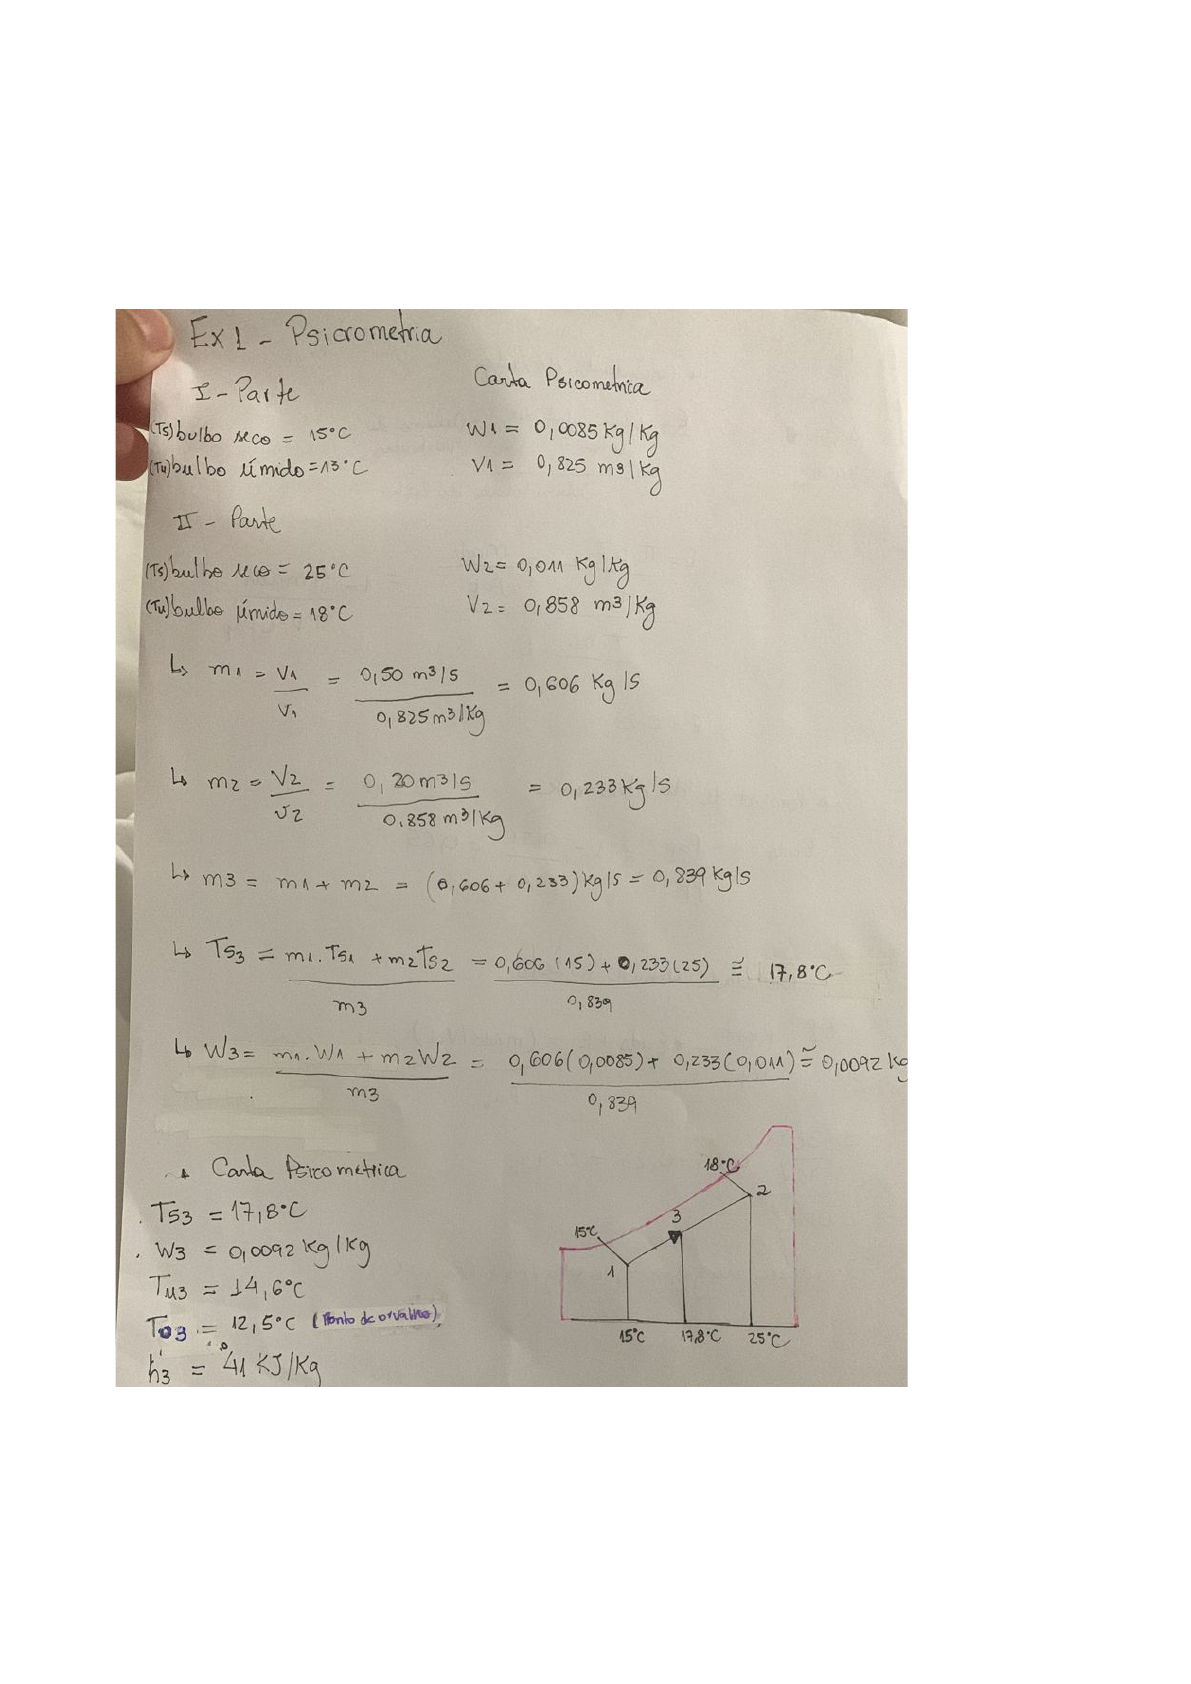 Ex 1 - Psicrometria
I - Parte
Carta Psicometrica
(Ts) bulbo seco = 15°C
W1 = 0,0085 Kg/Kg
(Tu) bulbo úmido = 13°C
V1 = 0,825 m3/Kg
II - Parte
(Ts) bulbo seco = 25°C
W2 = 0,011 Kg/Kg
(Tu) bulbo úmido = 18°C
V2 = 0,858 m3/Kg
↳ m1 = V1/V1 = 0,50 m3/s / 0,825 m3/Kg = 0,606 Kg/s
↳ m2 = V2/v2 = 0,20 m3/s / 0.858 m3/Kg = 0,233 Kg/s
↳ m3 = m1 + m2 = (0,606 + 0,233) Kg/s = 0,839 Kg/s
↳ Ts3 = m1.Ts1 + m2Ts2 / m3 = 0,606 (15) + 0,233 (25) / 0,839 ≅ 17,8°C
↳ W3 = m1.W1 + m2W2 / m3 = 0,606(0,0085) + 0,233(0,011) / 0,839 ≅ 0,0092 kg
Carta Psicometrica
Ts3 = 17,8°C
W3 = 0,0092 Kg/Kg
Tu3 = 14,6°C
To3 = 12,5°C (Ponto de orvalho)
h3 = 41 KJ/Kg
18°C
2
3
15°C
1
15°C 17,8°C 25°C